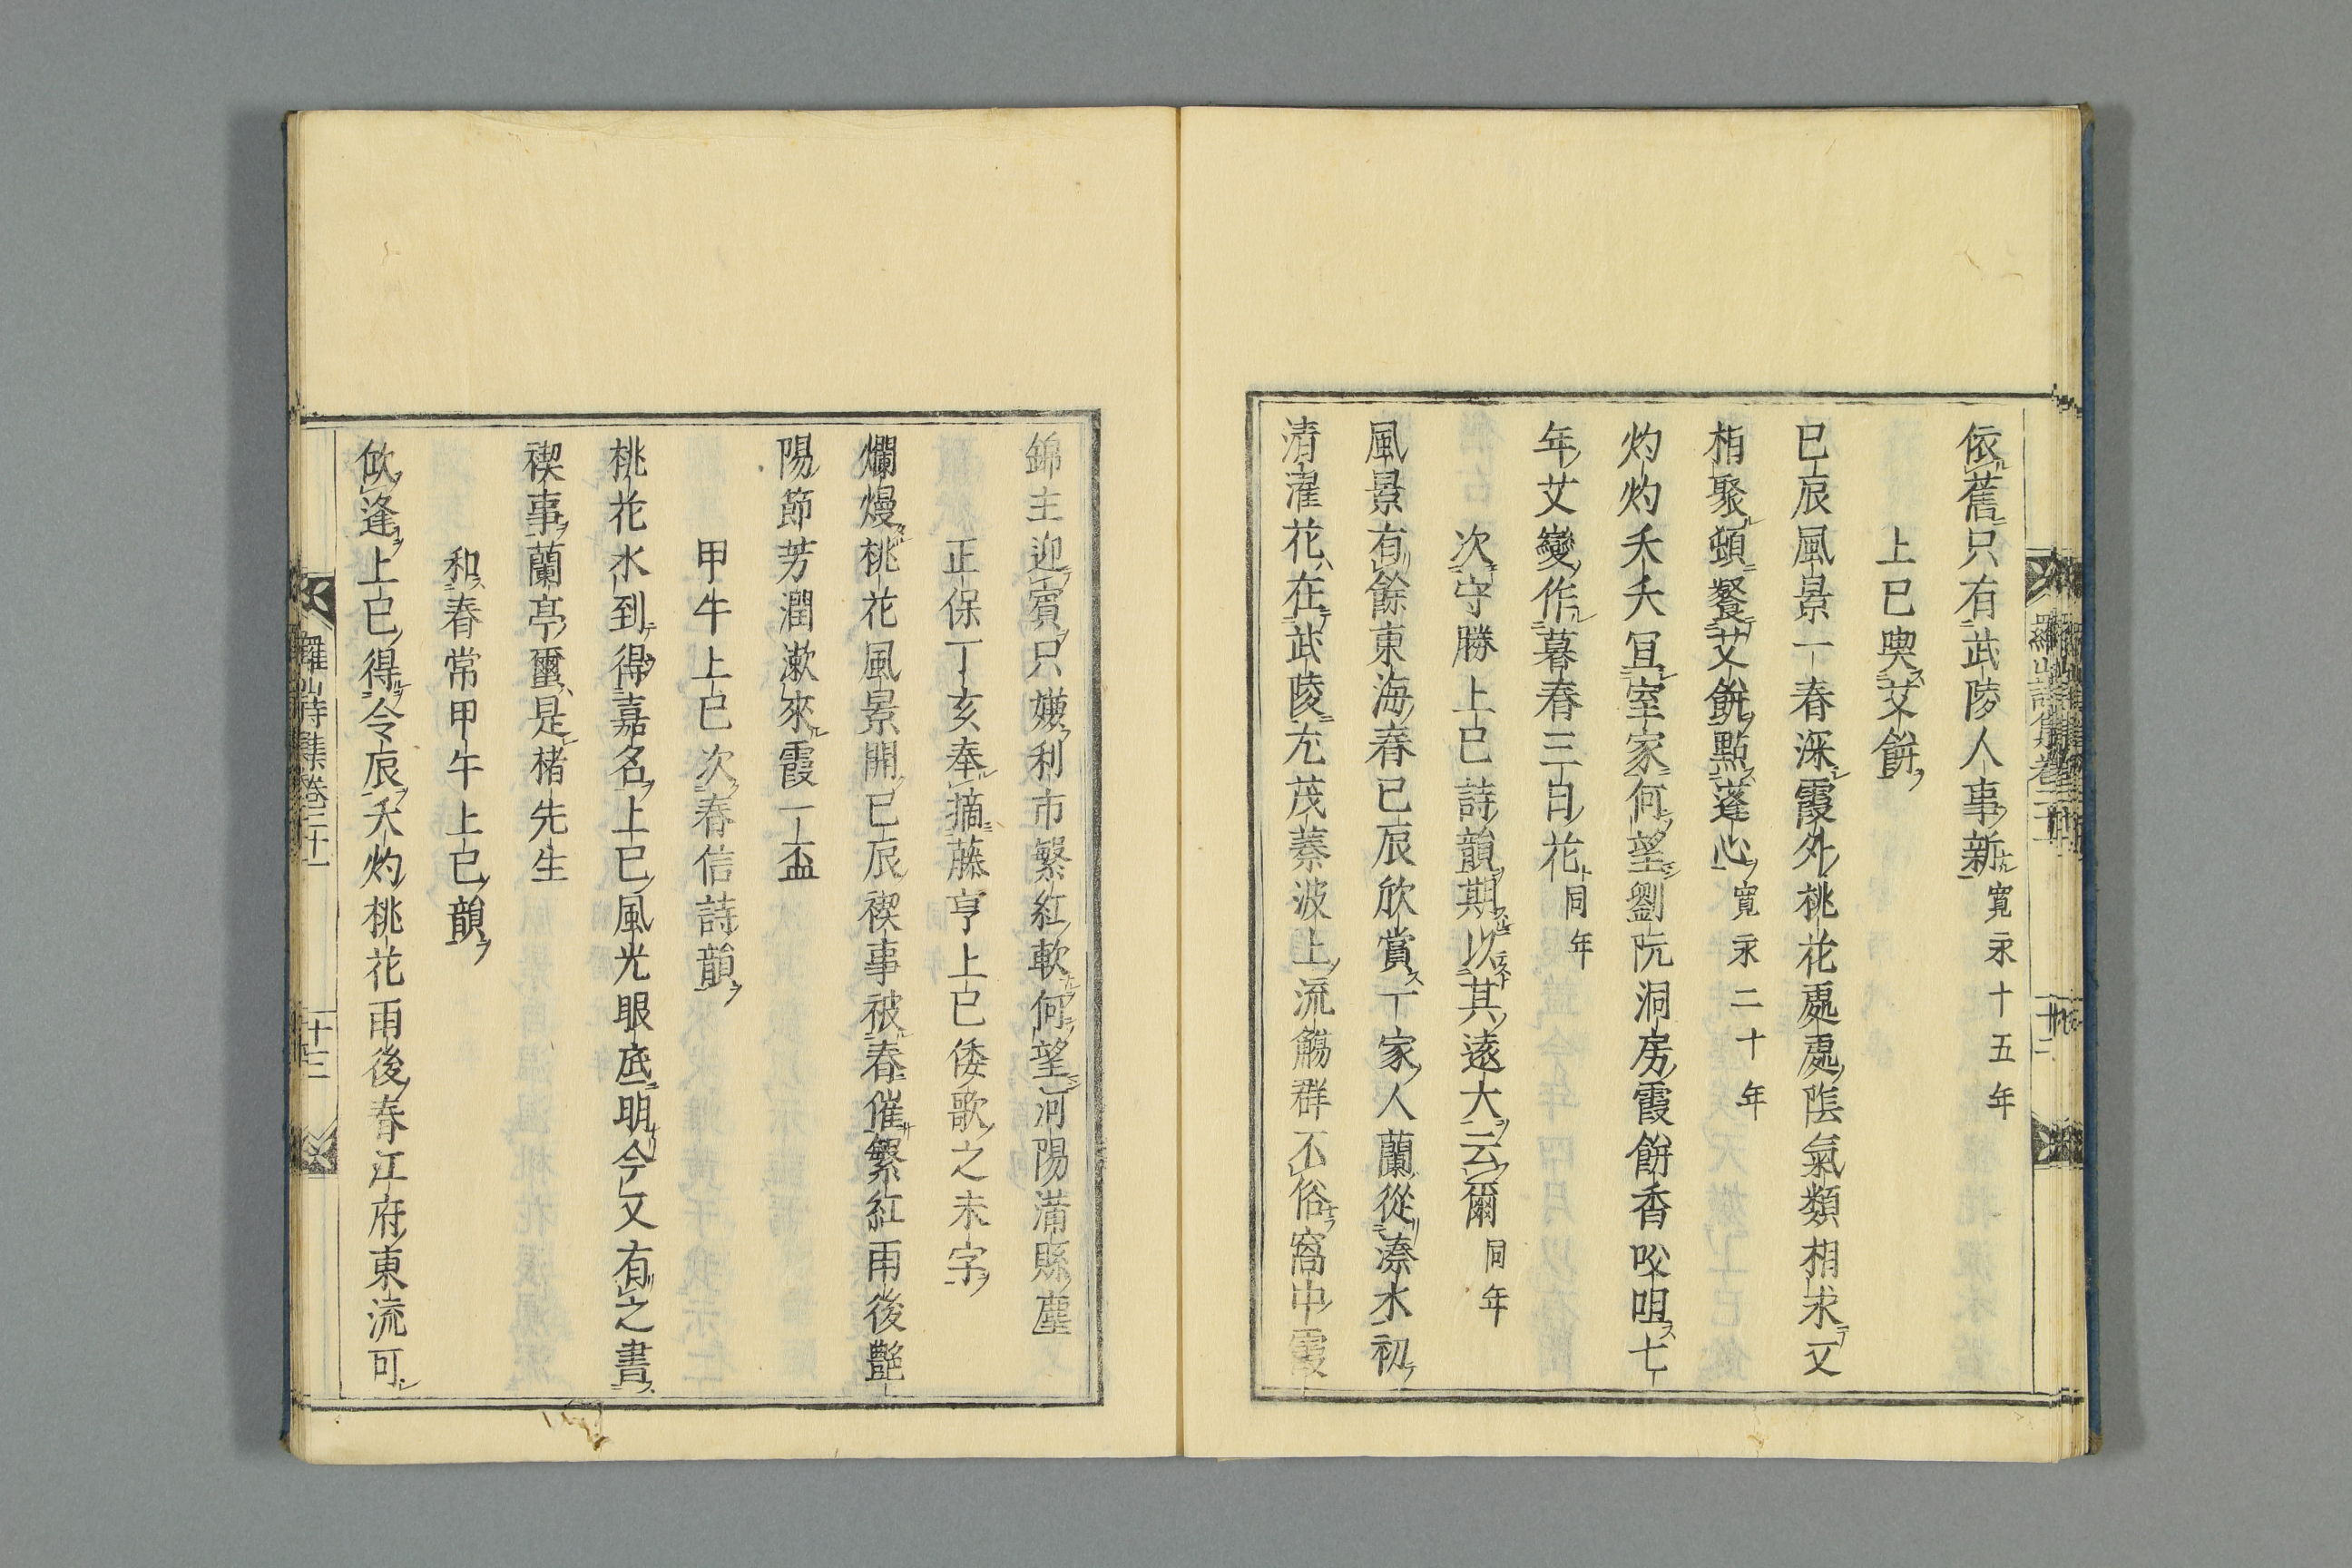 依舊只有武陵人事新 寛永十五年
上巳喫艾餅
已辰風景一春深霞外桃花處處陰氣類相求又
相聚頓餐艾餅點蓬心 寛永二十年
灼灼夭夭冝室家何望劉阮洞房霞餅香咬咀七
年艾變作暮春三日花 同年
次守勝上巳詩韻期以其遠大云爾 同年
風景有餘東海春已辰欣賞丁家人蘭從溱水初
清濯花在武陵尤茂蓁波上流觴群不俗窩中霞
錦主迎賓只嫌利市繁紅軟何望河陽滿縣塵
正保丁亥奉摘藤亨上巳倭歌之末字
爛熳桃花風景開已辰禊事被春催繁紅雨後艶
陽節芳潤漱來霞一盃
甲午上巳次春信詩韻
桃花水到得嘉名上巳風光眼底明今又有之書
禊事蘭亭璽是楮先生
和春常甲午上巳韻
欣逢上巳得令辰夭灼桃花雨後春江府東流可
羅山詩集卷二十一
十三